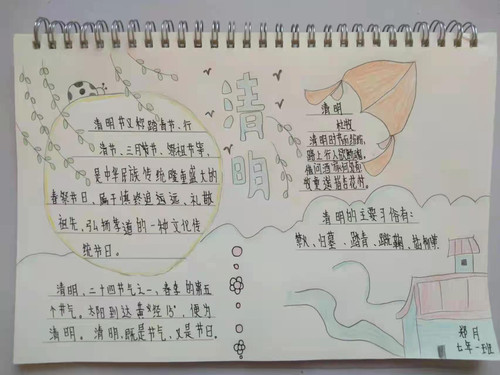 清明
清明节又称踏青节、行
清节、三月节、祭祖节等,
是中华民族传统隆重盛大的
春祭节日,属于慎终追远、礼敬
祖先、弘扬孝道的一种文化传
统节日。
清明
杜牧
清明时节雨纷纷,
路上行人欲断魂。
借问酒家何处有?
牧童遥指杏花村。
清明的主要习俗有:
禁火、扫墓、踏青、蹴鞠、插柳等
清明,二十四节气之一,春季的第五
个节气。太阳到达黄经15°,便为
清明。清明,既是节气,又是节日。
月
七年一班